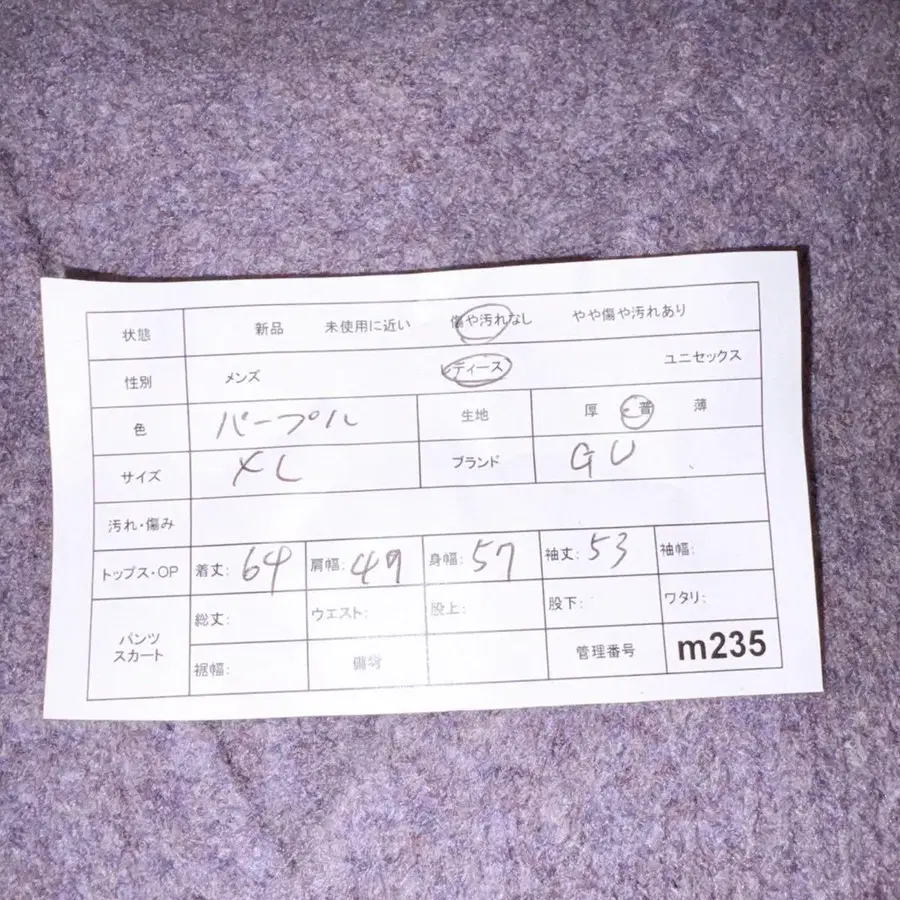 状態 新品 未使用に近い 傷や汚れなし やや傷や汚れあり
性別 メンズ ディース ユニセックス
色 パープル 生地 厚 普 薄
サイズ XL ブランド GU
汚れ・傷み
トップス・OP 着丈: 64 肩幅: 49 身幅: 57 袖丈: 53 袖幅:
パンツ
スカート
総丈: ウエスト: 股上: 股下: ワタリ:
裾幅: 備考 管理番号 m235